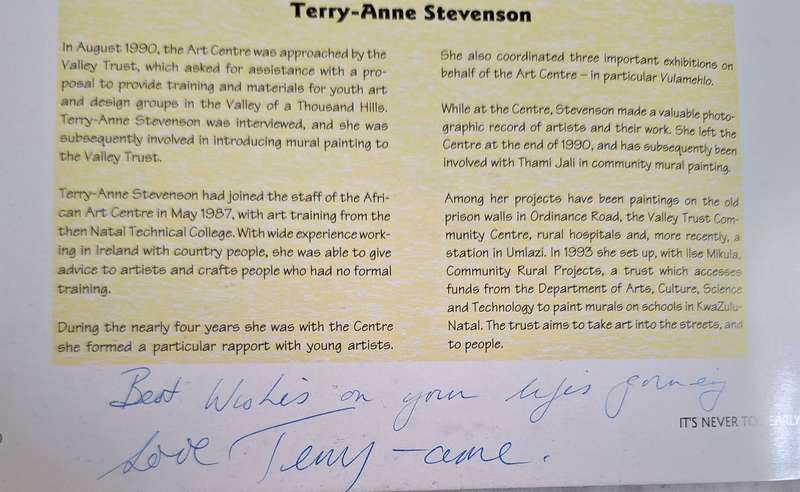 Terry-Anne Stevenson
In August 1990, the Art Centre was approached by the
Valley Trust, which asked for assistance with a pro-
posal to provide training and materials for youth art
and design groups in the Valley of a Thousand Hills.
Terry-Anne Stevenson was interviewed, and she was
subsequently involved in introducing mural painting to
the Valley Trust.
Terry-Anne Stevenson had joined the staff of the Afri-
can Art Centre in May 1987, with art training from the
then Natal Technical College. With wide experience work-
ing in Ireland with country people, she was able to give
advice to artists and crafts people who had no formal
training.
During the nearly four years she was with the Centre
she formed a particular rapport with young artists.
She also coordinated three important exhibitions on
behalf of the Art Centre – in particular Vulamehlo.
While at the Centre, Stevenson made a valuable photo-
graphic record of artists and their work. She left the
Centre at the end of 1990, and has subsequently been
involved with Thami Jali in community mural painting.
Among her projects have been paintings on the old
prison walls in Ordinance Road, the Valley Trust Com-
munity Centre, rural hospitals and, more recently, a
station in Umlazi. In 1993 she set up, with Ilse Mikula,
Community Rural Projects, a trust which accesses
funds from the Department of Arts, Culture, Science
and Technology to paint murals on schools in KwaZulu-
Natal. The trust aims to take art into the streets, and
to people.
Best Wishes on your lifes gorney
Love Terry-anne.
IT'S NEVER TOO EARLY